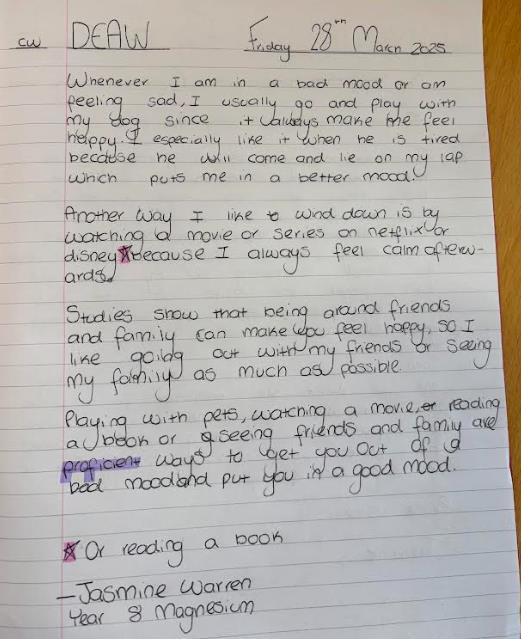 cw DEAW Friday 28th March 2025
Whenever I am in a bad mood or am
feeling sad, I usually go and play with
my dog since it always make me feel
happy. I especially like it when he is tired
because he will come and lie on my lap
which puts me in a better mood.
Another way I like to wind down is by
watching a movie or series on netflix or
disney☆because I always feel calm afterw-
ards.
Studies show that being around friends
and family can make you feel happy, so I
like going out with my friends or seeing
my family as much as possible.
Playing with pets, watching a movie, or reading
a book or seeing friends and family are
proficient ways to get you out of a
bad mood and put you in a good mood.
☆ Or reading a book
- Jasmine Warren
Year 8 Magnesium